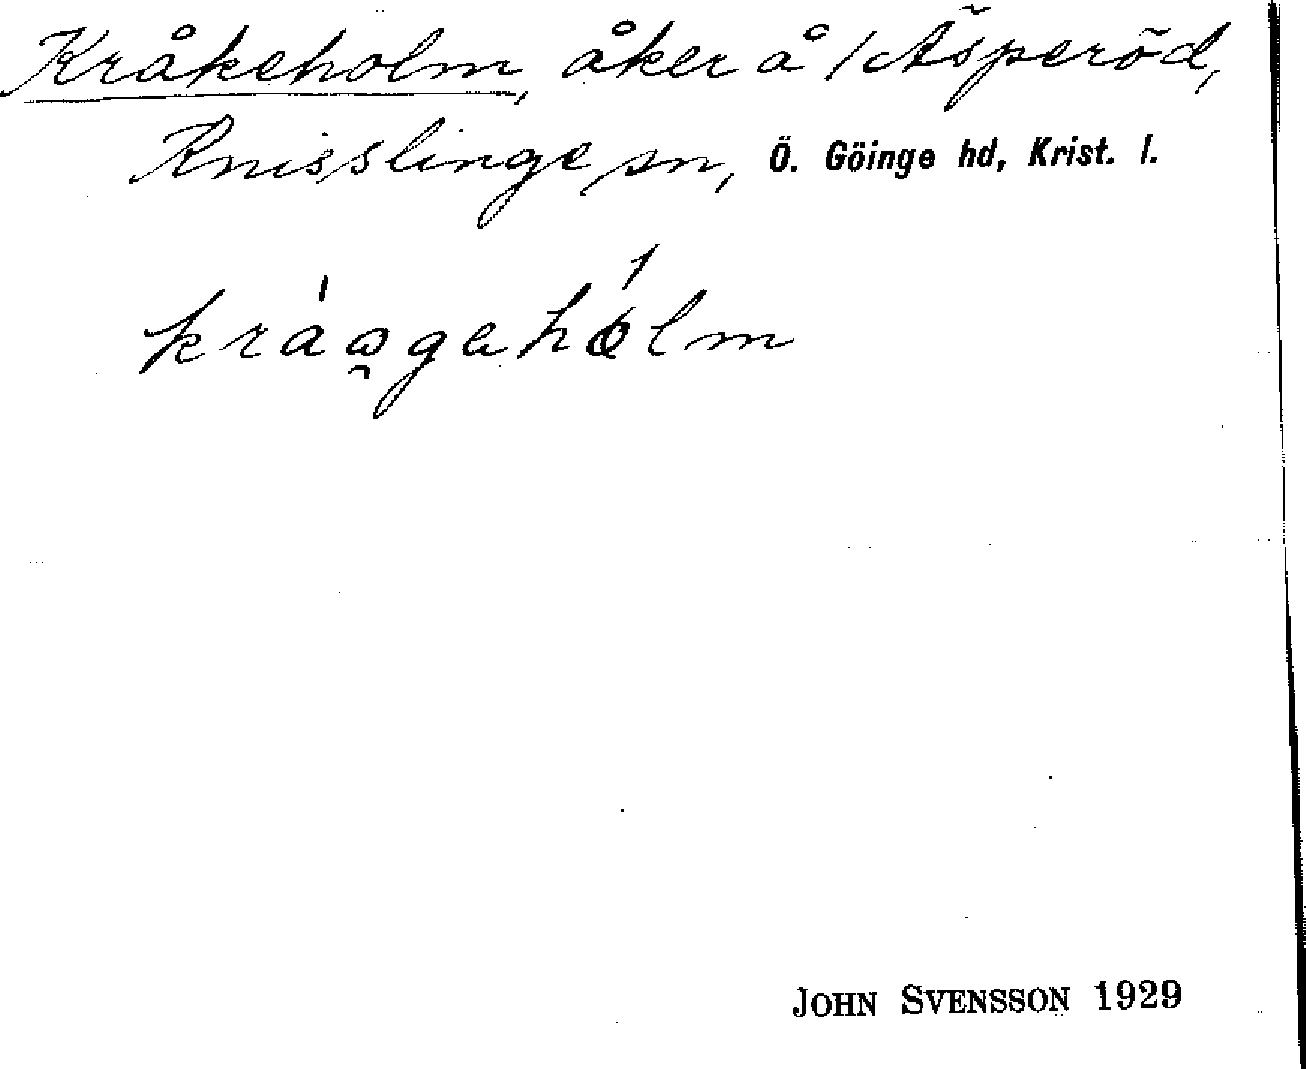 Kråkeholm, åker å 1 Äsperöd,
Knisslinge sn, Ö. Göinge hd, Krist. l.
JOHN SVENSSON 1929